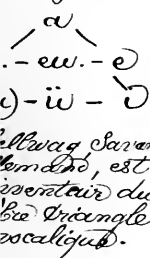 a
. - eu. - e
i) - ü - i
ellwag Savan
lemand, est
inventeur du
bre Triangle
vocalique.